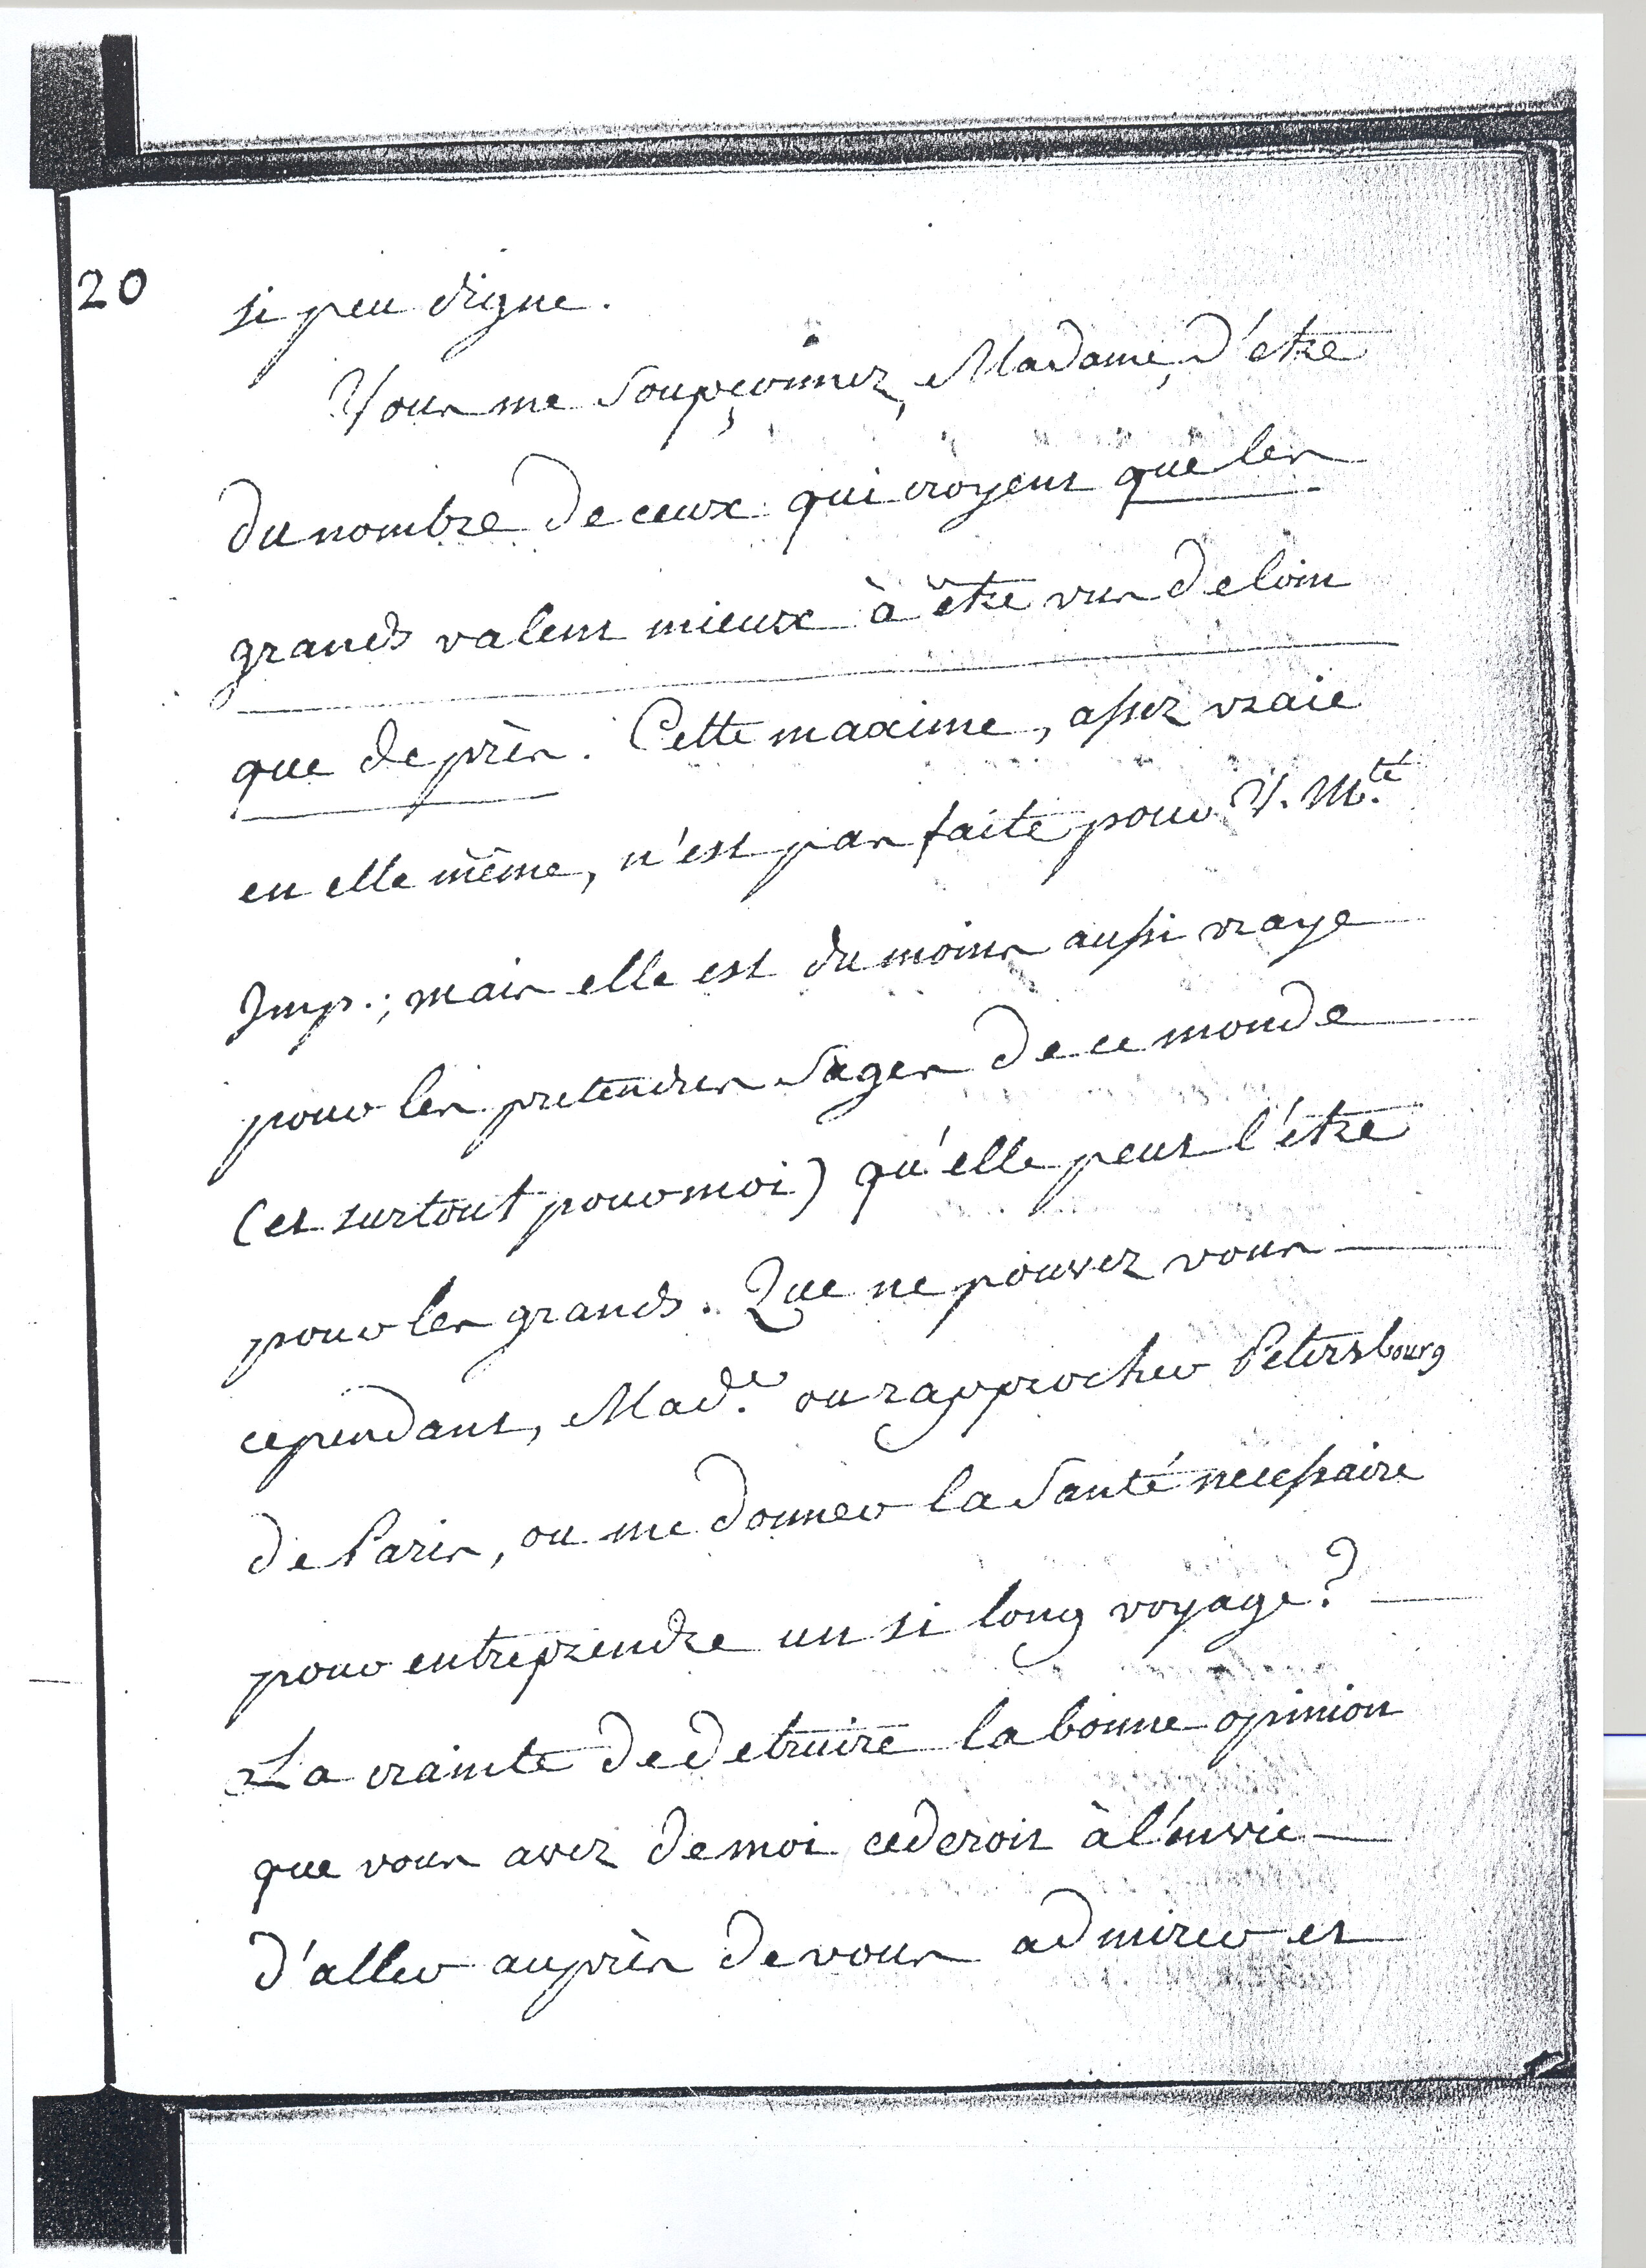 20
si peu digne.
Vous me Soupçonnez, Madame, d'etre
du nombre de ceux qui croyent que les
grands valent mieux à être vus de loin
que de près. Cette maxime, assez vraie
en elle même, n'est pas faite pour V. M.té
Imp.; mais elle est du moins aussi vraye
pour les pretendus Sages de ce monde
(et surtout pour moi) qu'elle peut l'être
pour les grands. Que ne pouvez vous
cependant, Mad.e ou rapprocher Petersbourg
de Paris, ou me donner la Santé necessaire
pour entreprendre un si long voyage?
La crainte de detruire la bonne opinion
que vous avez de moi cederoit à l'envie
d'aller auprès de vous admirer et